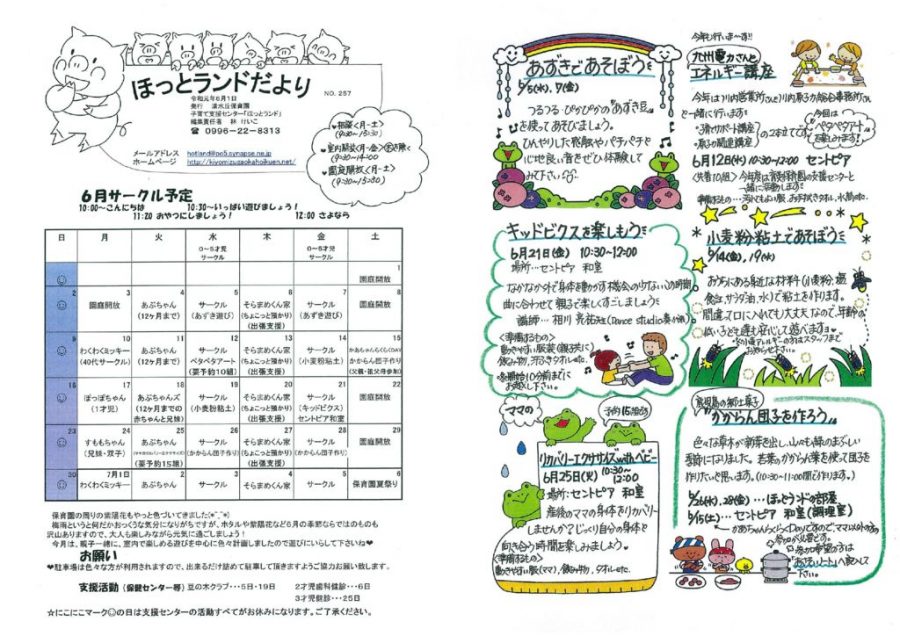 ほっとランドだより
NO. 257
令和元年6月1日
発行 清水丘保育園
子育て支援センター「ほっとランド」
編集責任者 林 けいこ
☎ 0996-22-8313
メールアドレス hotland@po5.synapse.ne.jp
ホームページ http://kiyomizugaokahoikuen.net/
♥相談<月~土>
(9:30~15:30)
♥室内開放<月~金>
(9:30~14:00
♥園庭開放<月~土>
(9:30~15:30)
6月サークル予定
10:00~こんにちは 10:30~いっぱい遊びましょう!
11:20 おやつにしましょう! 12:00 さよなら
日 月 火 水 木 金 土
0~5才児 サークル 0~6才児 サークル
1
園庭開放
2 3 4 5 6 7 8
園庭開放 あぶちゃん サークル そらまめくん家 サークル 園庭開放
(12ヶ月まで) (あずき遊び) (ちょこっと預かり) (あずき遊び)
(出張支援)
9 10 11 12 13 14 15
わくわくミッキー あぶちゃん サークル そらまめくん家 サークル
(40代サークル) (12ヶ月まで) ペタペタアート (ちょこっと預かり) (小麦粉粘土) (かからん団子作り)
(要予約10組) (出張支援) (父親・祖父母参加)
16 17 18 19 20 21 22
ぽっぽちゃん あぶちゃんズ サークル そらまめくん家 サークル 園庭開放
(1才児) (12ヶ月までの (小麦粉粘土) (ちょこっと預かり) (キッドビクス)
赤ちゃんと兄妹) (出張支援) セントピア和室
23 24 25 26 27 28 29
すももちゃん あぶちゃん サークル そらまめくん家 サークル 園庭開放
(兄妹・双子) (かからん団子作り) (ちょこっと預かり) (かからん団子作り)
(要予約15組) (出張支援)
30 7月1日 2 3 4 5 6
わくわくミッキー あぶちゃん サークル そらまめくん家 サークル 保育園夏祭り
保育園の周りの紫陽花もやっと色づいてきました(*^_^*)
梅雨というと何だかおっくうな気分になりがちですが、ホタルや紫陽花など6月の季節ならではのものも
沢山ありますので、大人も楽しみながら元気に過ごしましょう!
今月は、親子一緒に、室内で楽しめる遊びを中心に色々計画しましたので遊びにいらして下さいね♥
お願い
♥駐車場は色々な方が利用されますので、出来るだけ詰めて駐車して頂きますようご協力お願い致します。
支援活動(保健センター等) 豆の木クラブ・・・5日・19日 2才児歯科健診・・・6日
3才児健診・・・25日
☆にこにこマーク☺の日は支援センターの活動すべてがお休みになります。ご了承ください。
あずきであそぼう
6/5(水),7(金)
つるつる・ぴかぴかの“あずき豆”
を使ってあそびましょう。
ひんやりした感触やパチパチと
心地良い音をぜひ体験して
みて下さい。
キッドビクスを楽しもう
6月21日(金) 10:30~12:00
場所…セントピア 和室
なかなか外で身体を動かす機会の少ないこの時期
曲に合わせて親子で楽しくすごしましょう
<準備するもの>
動きやすい服装(親子共に)
飲み物、汗ふきタオルetc.
ママの
予約15組
リカバリーエクササイズwithベビー
6月25日(火) 10:30~12:00
場所:セントピア 和室
産後のママの身体をリカバリー
しませんか?じっくり自分の身体と
向き合う時間を楽しみましょう
<準備するもの>
動きやすい服(ママ),飲み物,タオルetc.
今年も行いま~す!!
九州電力さんと
エネルギー講座
今年は川内営業所さんと川内原子力発電所さん
と一緒に行います
の2本立てです。
今回は
“ペタペタアート”
を楽しみます!
6月12日(水) 10:30~12:00 セントピア
一緒に活動します
小麦粉粘土であそぼう
6/14(金),19(水)
おうちにある身近な材料(小麦粉,塩
食紅,サラダ油,水)で粘土を作ります。
間違ってロに入れても大丈夫なので、年齢の
低い子ども達も安心して遊べます。
※小麦アレルギーの方はスタッフまで
お知らせ下さい。
鹿児島の郷土菓子
“かからん団子を作ろう”
色々な草木が新芽を出し、山々も緑のまぶしい
季節になりました。若葉のかからん葉を使って団子を
作りたいと思います。(10:30~11:00間で作ります。)
6/26(水),28(金)…ほっとランドの部屋
6/15(土)…セントピア 和室(調理室)